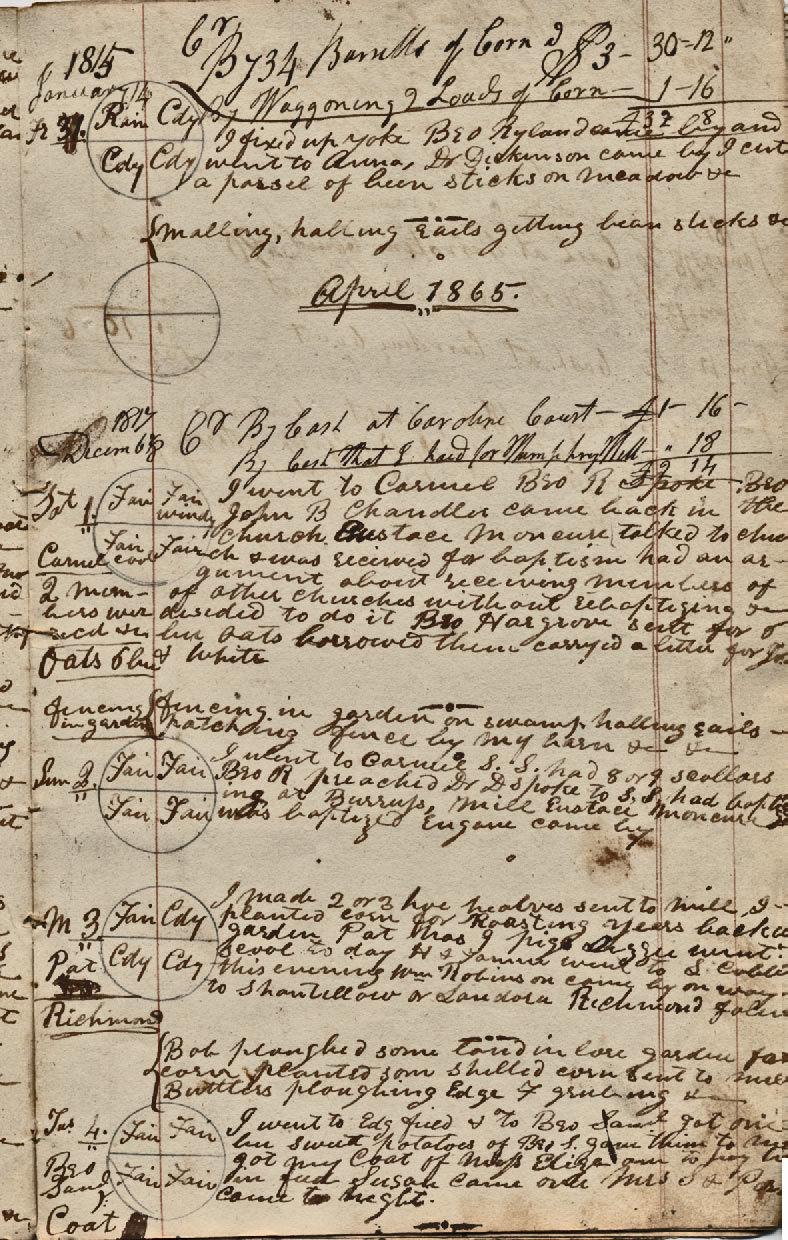 1815 Cr
January 14 By 34 Barrells of Corn @ 3 - 30-12
By Waggoning 2 Loads of Corn 1-16
Fr 31. Rain Cdy I fixed up yoke Bro Ryland came by and
Cdy Cdy went to Anna, Dr Dickinson came by I cut
a passel of been sticks on meadow &c
Malling, halling rails getting bean sticks &c
April 1865.
1817
December Cr By Cash at Caroline Court 1-16-
By Cash that I paid for 18
2 14
Sat 1. Fair Fair windy I went to Carmel Bro R Spoke Bro
John B Chandler came back in the
Fair cool Fair Church Eustace Moncure talked to chur
Carmel ch & was received for baptism had an ar-
gument about receiving members of
2 mem- of other churches without rebaptizing &c
bers wer decided to do it Bro Hargrove sent for 6
recd &c bu oats borrowed them carryed a little for
Oats 6 bu & White
fencing in garden fencing in garden on swamp halling rails -
patching fence by my barn &c &c
Sun 2. Fair Fair I went to Carmel S. S. had 8 or 9 scollars
Fair Fair Bro R preached Dr D spoke to S. S. had baptiz
ing at Burrups Mill Eustace Moncure
was baptized Eugane came by
M 3 Fair Cdy I made 2 or 3 hoe healves sent to mill I
planted corn for Roasting years back
Cdy Cdy garden Pat has 9 pigs Lizzie went
Pat to day H & Fannie went to S
this evening Wm Robinson came by on way
Richmond to Shantillow or Landora Richmond
Bob ploughed some land in lore garden for
corn planted som shelled corn sent to mill
Buttlers ploughing Edge 7 grubing &c
Tus 4. Fair Fair I went to Edg field & to Bro Saml got one
Fair Fair bu sweet potatoes of Bro S. gave them to
Bro Saml got my Coat of Miss Eliza am to pay
in Susan came over Mrs S &
came to night.
Coat